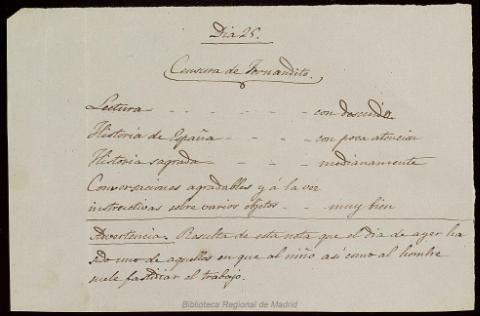 Dia 25.
Censura de Fernandito.
Lectura - - - - - con descuido
Historia de España - - - con poca atencion
Historia sagrada - - - - medianamente
Conversaciones agradables y á la vez
instructivas sobre varios objetos - - muy bien
Advertencia. Resulta de esta nota que el dia de ayer ha
sido uno de aquellos en que al niño asi como al hombre
suele fastidiar el trabajo.
Biblioteca Regional de Madrid